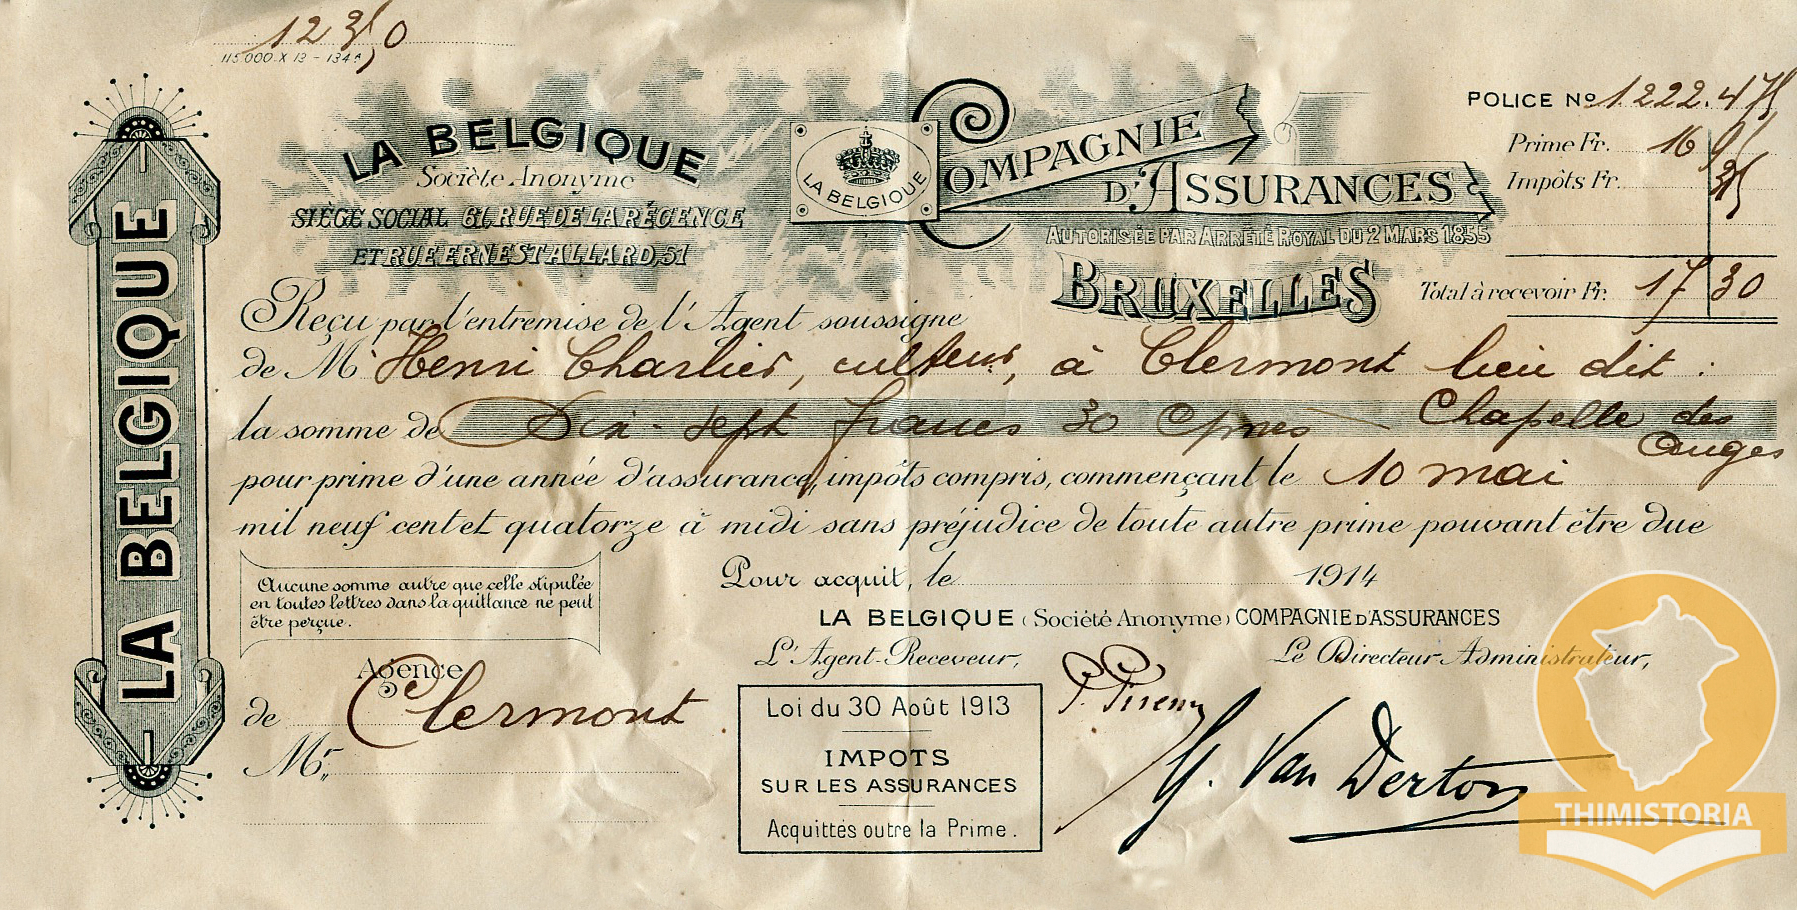 12350
115.000 X 13 - 134
LA BELGIQUE
LA BELGIQUE
Société Anonyme
SIÈGE SOCIAL 61, RUE DE LA RÉGENCE
ET RUE ERNEST ALLARD, 51
LA BELGIQUE
COMPAGNIE
D'ASSURANCES
AUTORISÉE PAR ARRÊTÉ ROYAL DU 2 MARS 1855
BRUXELLES
POLICE No 1.222.475
Prime Fr. 16 95
Impôts Fr. 35
Total à recevoir Fr. 17 30
Reçu par l'entremise de l'Agent soussigné
de Mr Henri Charlier, culteur, à Clermont lieu dit :
la somme de Dix-sept francs 30 Cmes — Chapelle des
Anges
pour prime d'une année d'assurance, impôts compris, commençant le 10 mai
mil neuf cent et quatorze à midi sans préjudice de toute autre prime pouvant être due
Aucune somme autre que celle stipulée
en toutes lettres dans la quittance ne peut
être perçue.
Pour acquit, le 1914
LA BELGIQUE (Société Anonyme) COMPAGNIE D'ASSURANCES
L'Agent-Receveur,
Le Directeur-Administrateur,
Agence
de Clermont
Mr
Loi du 30 Août 1913
IMPOTS
SUR LES ASSURANCES
Acquittés outre la Prime.
THIMISTORIA